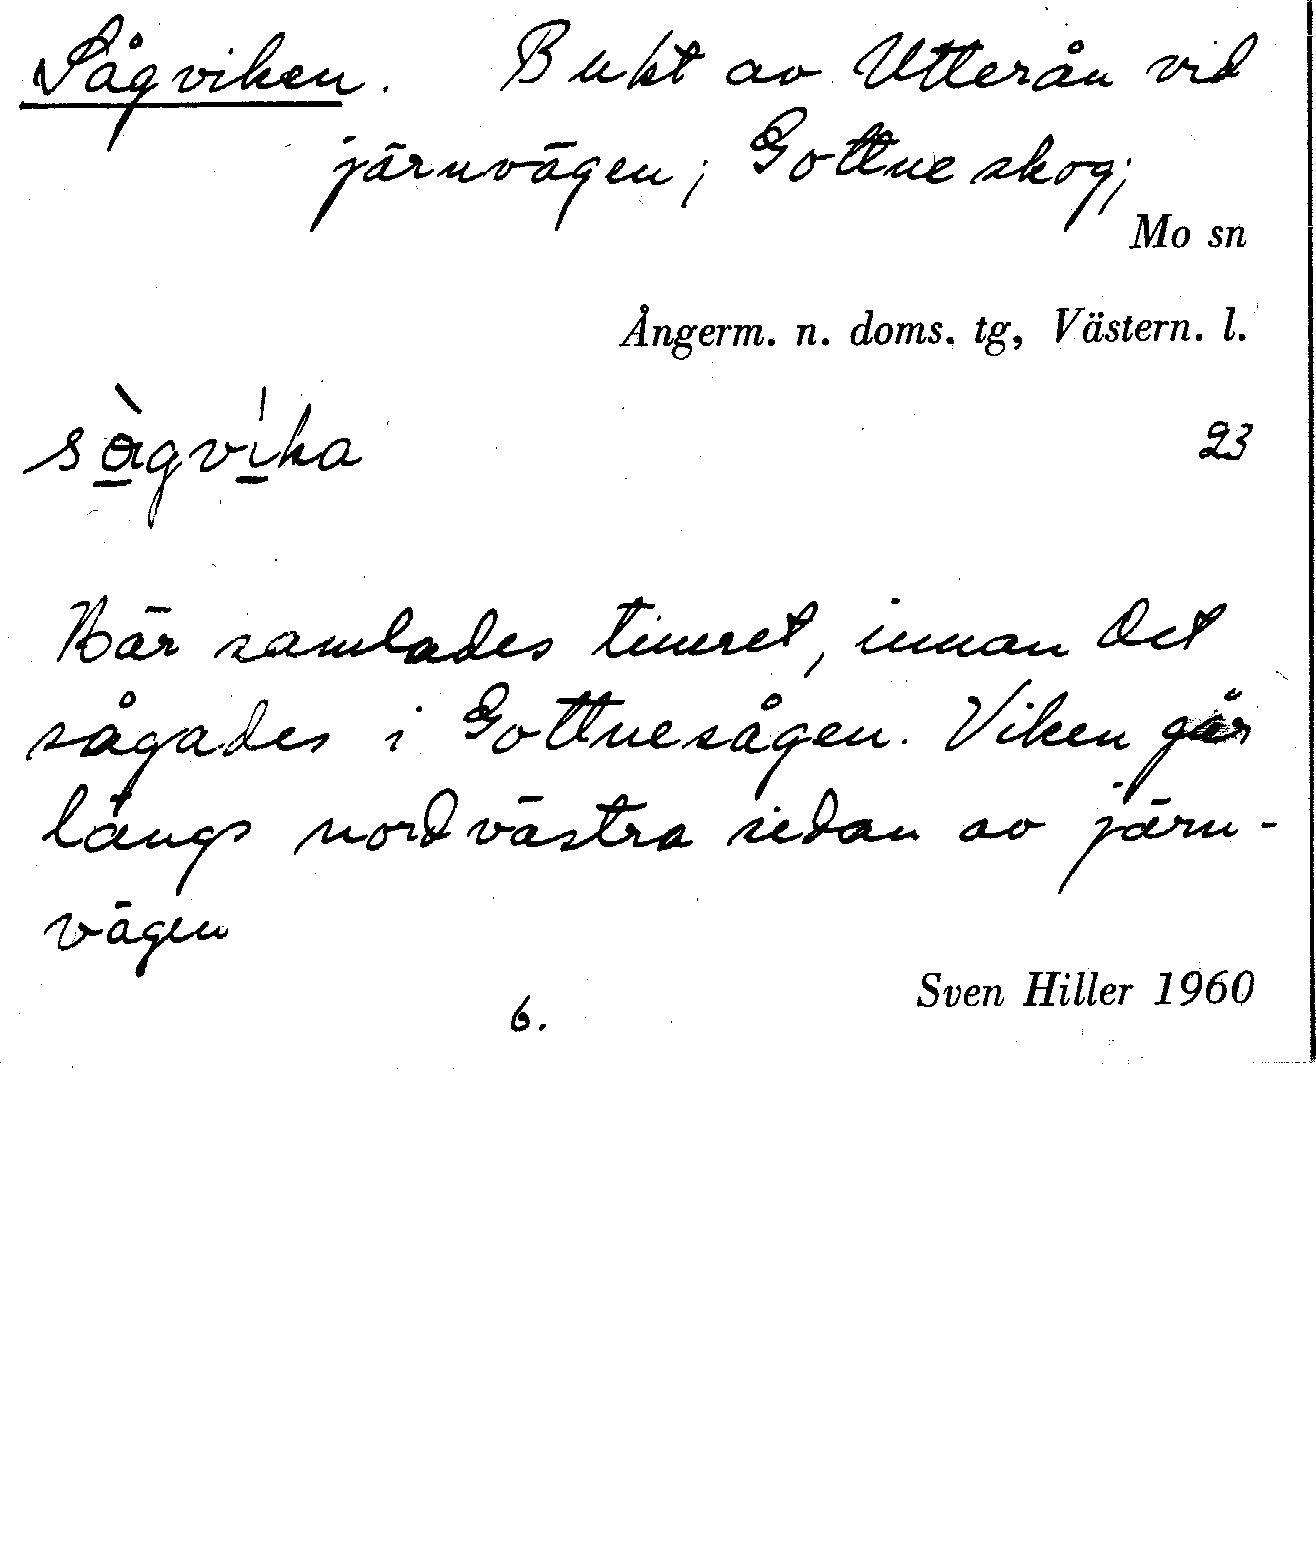 Sågviken. Bukt av Utterån vid
järnvägen; Gottne skog;
Mo sn
Ångerm. n. doms. tg, Västern. l.
sàgvíka 23
Här samlades timret, innan det
sågades i Gottnesågen. Viken går
längs nordvästra sidan av järn-
vägen
Sven Hiller 1960
6.